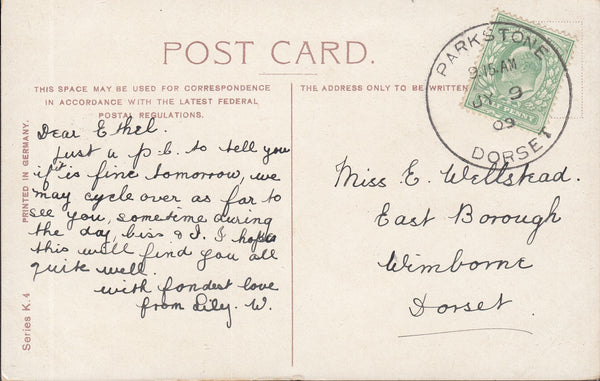 POST CARD.
THIS SPACE MAY BE USED FOR CORRESPONDENCE
IN ACCORDANCE WITH THE LATEST FEDERAL
POSTAL REGULATIONS.
THE ADDRESS ONLY TO BE WRITTEN
PARKSTONE
9.15 AM
JY 9
09
DORSET
PENNY
Dear Ethel.
Just a p.c. to tell you
if it is fine tomorrow, we
may cycle over as far to
see you, sometime during
the day, Ciss & I. I hope
this will find you all
quite well.
with fondest love
from Lily. W.
Miss E. Wellstead.
East Borough
Wimborne
Dorset.
PRINTED IN GERMANY.
Series K.4